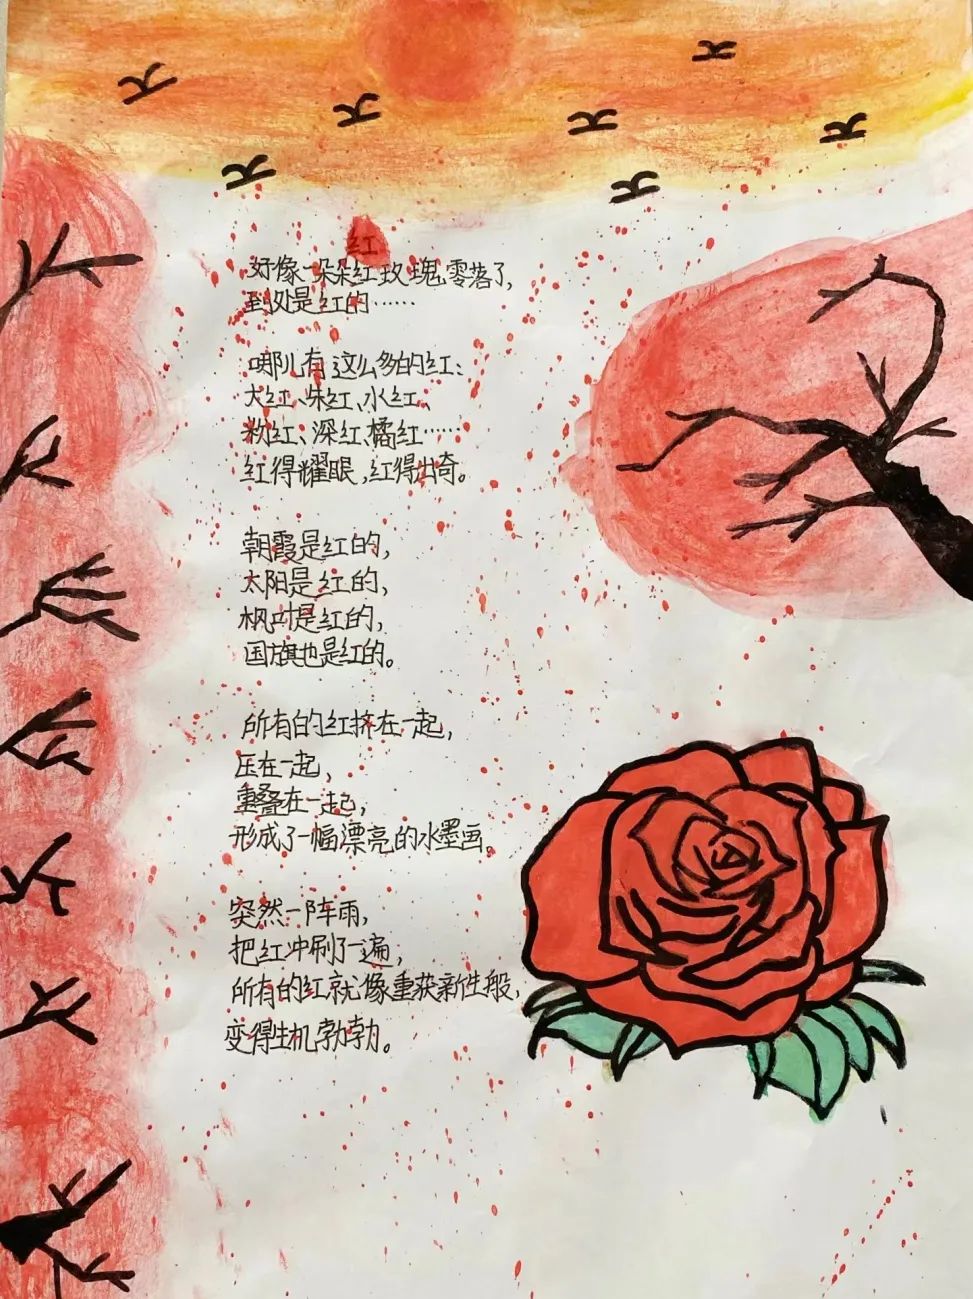 红
好像一朵朵红玫瑰零落了,
到处是红的……
哪儿有这么多的红:
大红、朱红、水红、
粉红、深红、橘红……
红得耀眼,红得出奇。
朝霞是红的,
太阳是红的,
枫叶是红的,
国旗也是红的。
所有的红挤在一起,
压在一起,
重叠在一起,
形成了一幅漂亮的水墨画。
突然一阵雨,
把红冲刷了一遍,
所有的红就像重获新生般,
变得生机勃勃。